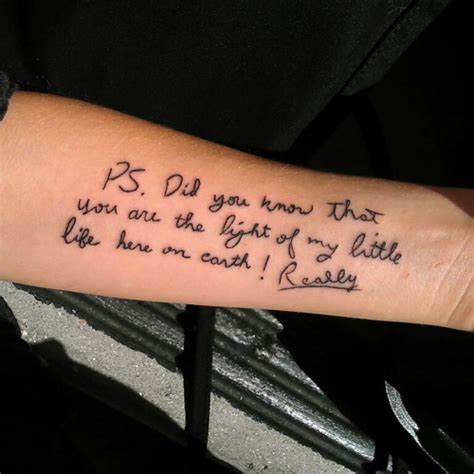 PS. Did you know that
you are the light of my little
life here on earth! Really